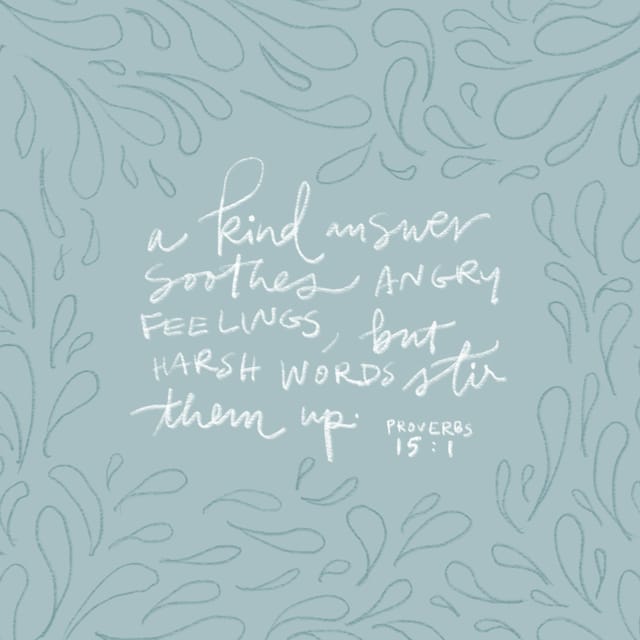 a kind answer
soothes ANGRY
FEELINGS, but
HARSH WORDS stir
them up.
PROVERBS
15:1